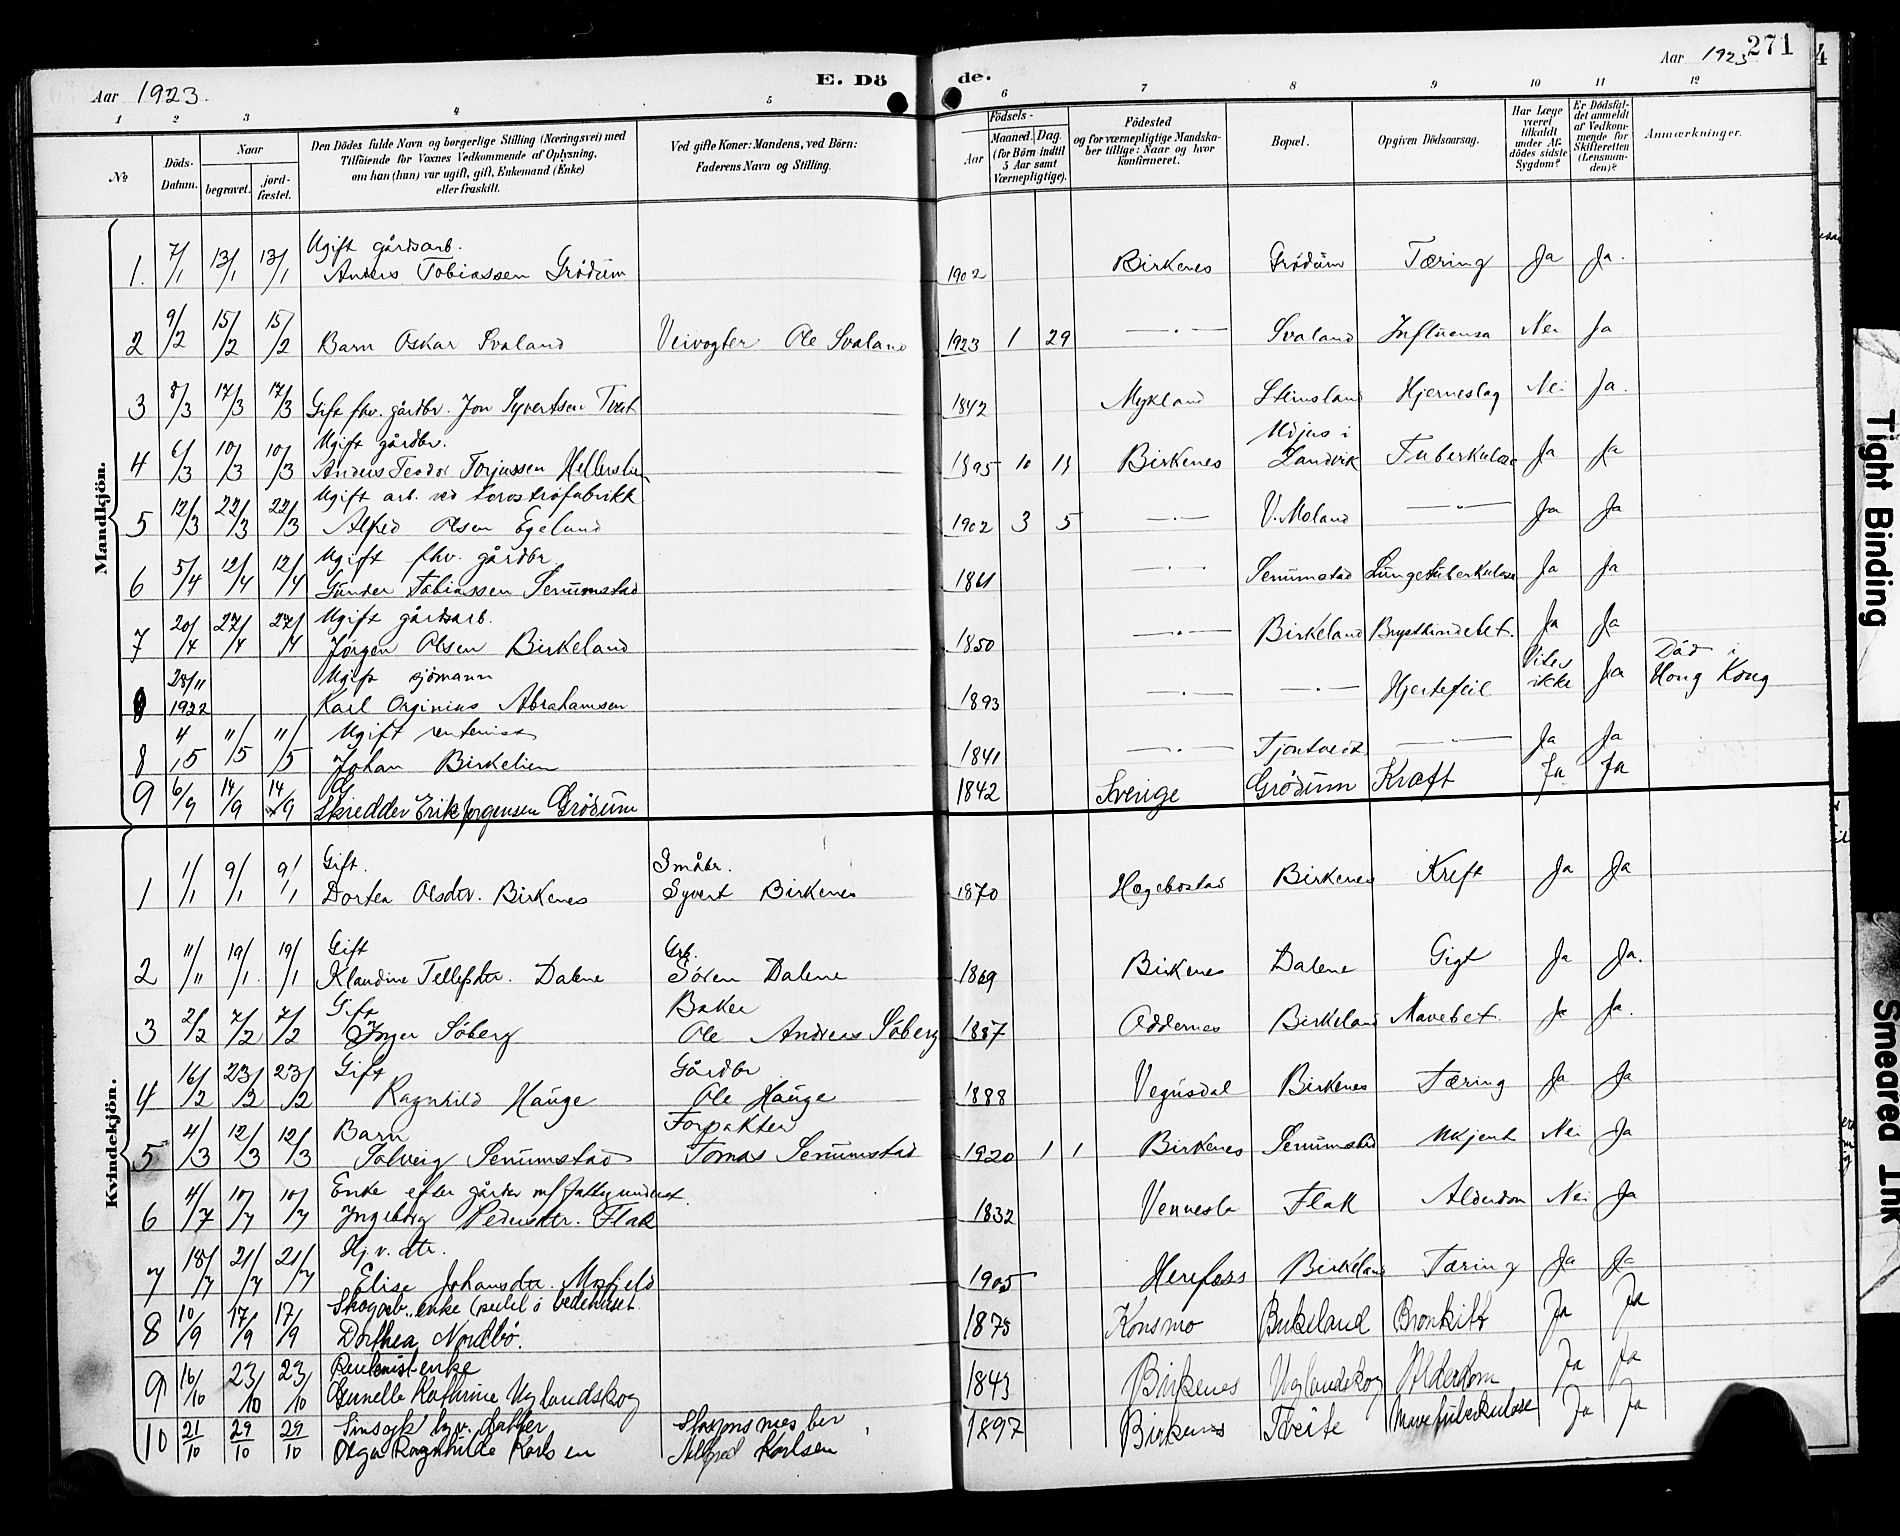 Aar 1923.
E. Dö
de.
Aar 1923
271
1 2 3 4 5 6 7 8 9 10 11 12
No
Döds-Datum.
Naar
begravet.
jord-fæstet.
Den Dödes fulde Navn og borgerlige Stilling (Næringsvei) med
Tilföiende for Voxnes Vedkommende af Oplysning,
om han (hun) var ugift, gift, Enkemand (Enke)
eller fraskilt.
Ved gifte Koner: Mandens, ved Börn:
Faderens Navn og Stilling.
Födsels-
Aar
Maaned. Dag.
(for Börn indtil
5 Aar samt
Værnepligtige).
Födested
og for værnepligtige Mandska-
ber tillige: Naar og hvor
konfirmeret.
Bopæl.
Opgiven Dödsaarsag.
Har Læge
været
tilkaldt
under Af-
dödes sidste
Sygdom?
Er Dödsfal-
det anmeldt
af Vedkom-
mende for
Skifteretten
(Lensman-
den)?
Anmærkninger.
Mandkjön.
Ugift gårdsarb.
1. 7/1 13/1 13/1 Anders Tobiassen Grödum 1902 Birkenes Grödum Tæring Ja Ja.
2 9/2 15/2 15/2 Barn Oskar Svaland Veivogter Ole Svaland 1923 1 29 —.— Svaland Influensa Nei Ja
3 8/3 17/3 17/3 Gift fhv. gårdbr. Jon Syvertsen Tveit 1842 Mykland Stinsland Hjerneslag Nei Ja.
Ugift gårdbr.
4 6/3 10/3 10/3 Anders Teodor Torjussen 1895 10 Birkenes i Landvik Tuberkulose Ja Ja
Ugift arb. ved torvströfabrikk
5 12/3 22/3 22/3 Alfred Olsen Egeland 1902 3 5 —.— V. Moland —"— Ja Ja
Ugift fhv. gårdbr
6 5/4 12/4 12/4 Gunder Tobiassen Senumstad 1861 —.— Senumstad Lungetuberkulose Ja Ja
Ugift gårdsarb.
7 20/4 27/4 27/4 Jörgen Olsen Birkeland 1850 —.— Birkeland Ja Ja
Ugift sjömann
28/11 1922 Karl Orginius Abrahamsen 1893 —.— —.— Hjertefeil Vites ikke Ja Död i Hong Kong
Ugift rentenist
8 4/5 11/5 11/5 Johan Birkelien 1841 —.— —"— Ja Ja
9 6/9 14/9 14/9 Skredder Erik Jorgensen Grödum 1842 Sverige Grödum Kræft Ja Ja
Kvindekjön.
Gift. Småbr.
1 1/1 9/1 9/1 Dortea Olsdtr. Birkenes Syvert Birkenes 1870 Hægebostad Birkenes Kreft Ja Ja
Gift Arb.
2 11/11 19/1. 19/1 Klaudine Tellefsdtr. Dalene Sören Dalene 1869 Birkenes Dalene Gigt Ja Ja.
Gift Baker
3 2/2 7/2 7/2 Inger Söberg Ole Andreas Söberg 1887 Oddernes Birkeland Mavebet. Ja Ja.
Gift Gårdbr
4 16/2 23/2 23/2 Ragnhild Hauge Ole Hauge 1888 Vegusdal Birkenes Tæring Ja Ja
Barn Forpakter
5 4/3 12/3 12/3 Solveig Senumstad Tomas Senumstad 1920 1 1 Birkenes Senumstad Ukjent Nei Ja
Enke efter gårdbr m/ fattigunderst.
6 4/7 10/7 10/7 Ingeborg Pedersdtr. Flak 1832 Vennesla Flak Alderdom Nei Ja
Hj.v. dtr.
7 18/7 21/7 21/7 Elise Johansdtr. Mosfjeld 1905 Herefoss Birkeland Tæring Ja Ja
Skogarb. enke
8 10/9 17/9 17/9 Dorthea Nordbö. 1875 Konsmo Birkeland Bronkitt Ja Ja
Rentenist-enke
9 16/10 23/10 23/10 Gunelle Kathrine Uglandskog 1843 Birkenes Uglandskog Alderdom Ja Ja
Sinsyk hjv. datter
10 21/10 29/10 29/10 Olga Ragnhilde Karlsen Karlsen 1897 Birkenes Tveite Mavetuberkulose Ja Ja
Tight Binding
Smeared Ink